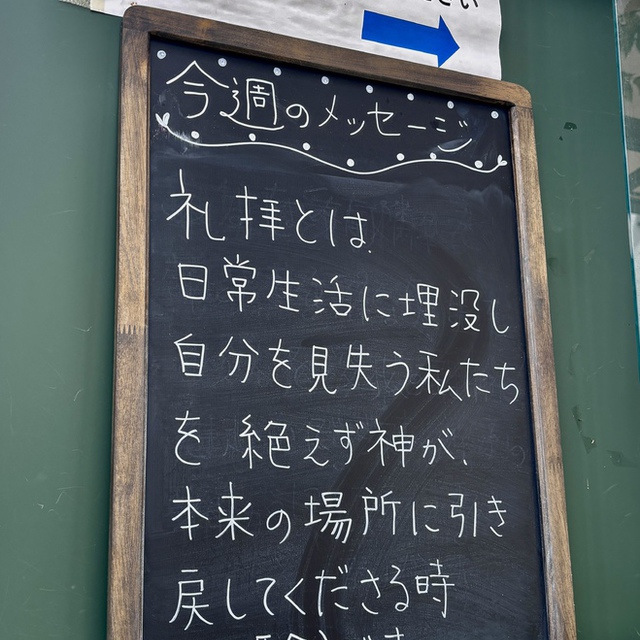 さい
今週のメッセージ
礼拝とは、
日常生活に埋没し
自分を見失う私たち
を絶えず神が、
本来の場所に引き
戻してくださる時